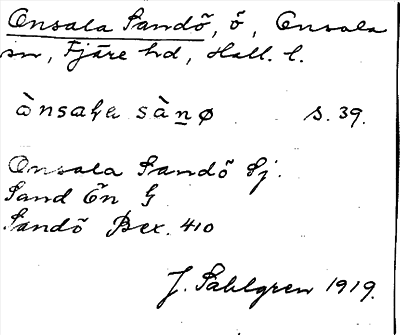 Onsala Sandö, ö, Onsala
sn, Fjäre hd, Hall. l.
ònsaɭa sàn̠ø s. 39.
Onsala Sandö Sj.
Sand Ön G
Sandö Bex. 410
J. Sahlgren 1919.